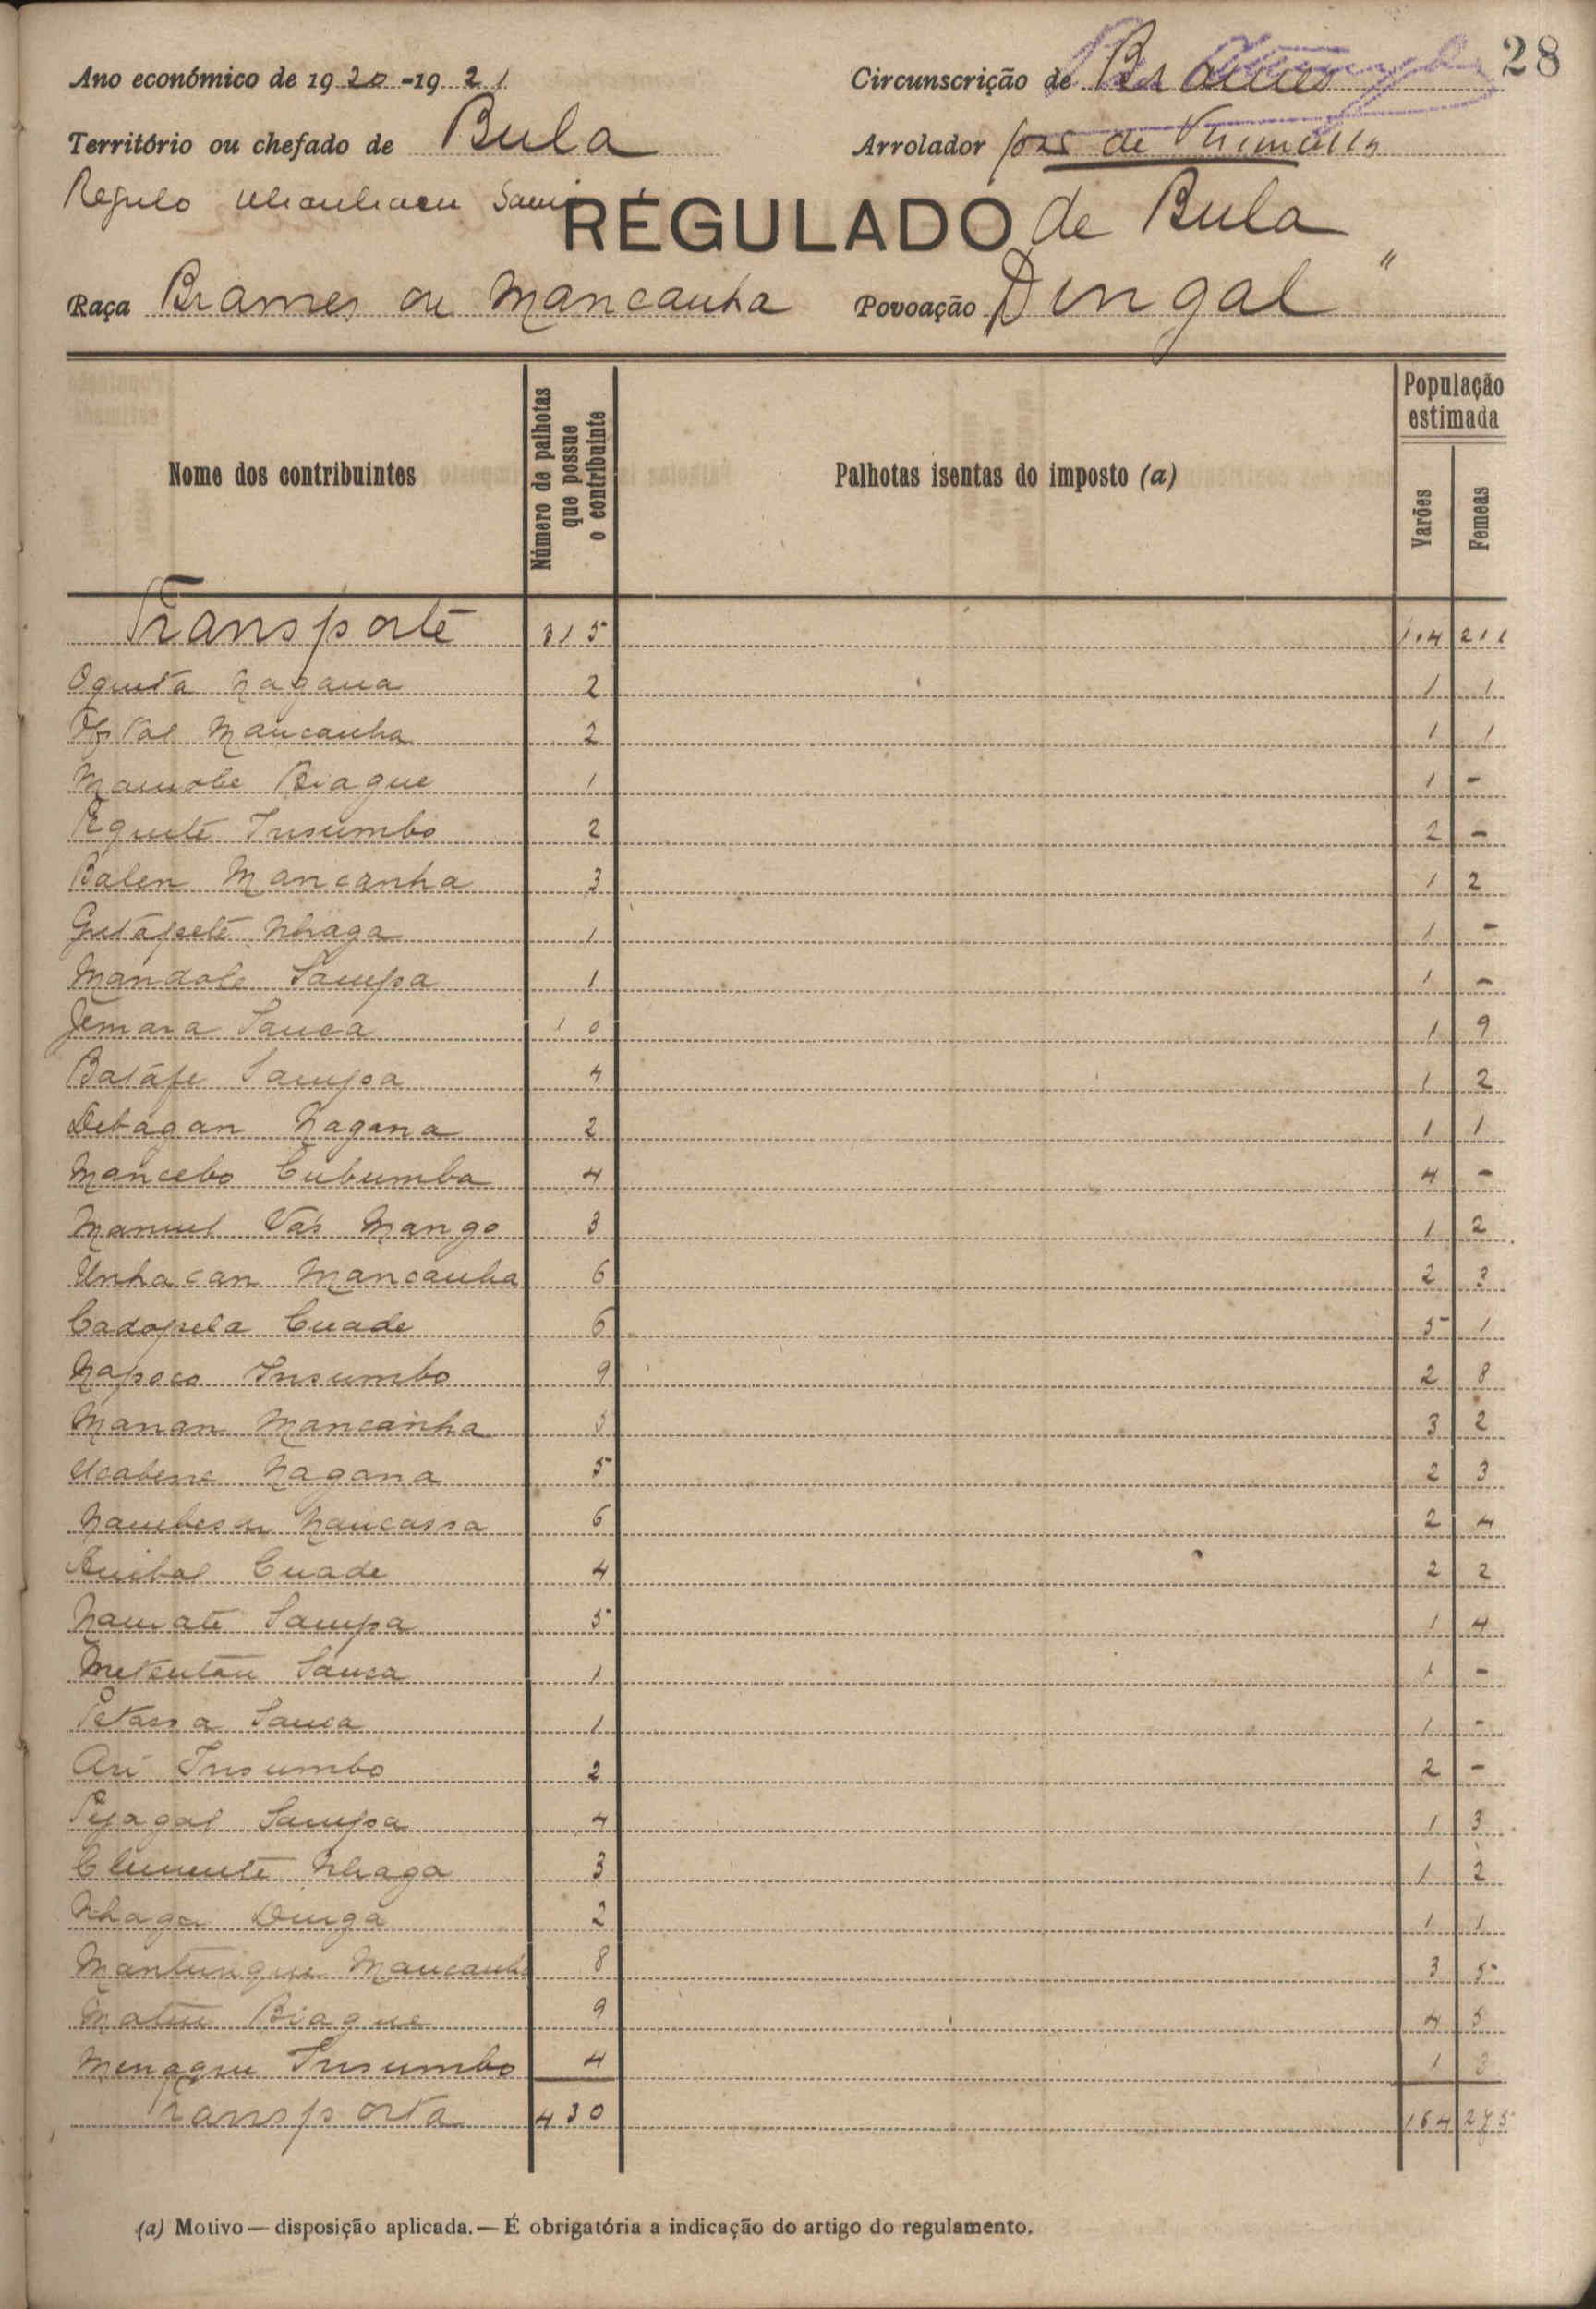 28
Ano económico de 1920-1921 Circunscrição de Brames
Território ou chefado de Bula Arrolador José de
Regulo
RÉGULADO de Bula
Raça Brames ou Mancanha Povoação Dingal "
Nome dos contribuintes Número de palhotas que possue o contribuinte Palhotas isentas do imposto (a) População estimada Varões Femeas
Transporte 315 104 211
Oquita Nagana 2 1 1
Mancanha 2 1 1
Biague 1 1 -
Insumbo 2 2 -
Balen Mancanha 3 1 2
Nhaga 1 1 -
Mandole Sampa 1 1 -
Jemara Sanca 10 1 9
Batáfe Sampa 4 1 2
Debagan Nagana 2 1 1
Mancebo Cubumba 4 4 -
Manuel Vás Mango 3 1 2
Unhacan Mancanha 6 2 3
Cadopela Cuade 6 5 1
Napoco Insumbo 9 2 8
Manan Mancanha 5 3 2
Ucabene Nagana 5 2 3
Nancassa 6 2 4
Anibal Cuade 4 2 2
Namate Sampa 5 1 4
Sanca 1 1 -
Petassa Sanca 1 1 -
Ari Insumbo 2 2 -
Pejagal Sampa 4 1 3
Clemente Nhaga 3 1 2
Nhaga Dinga 2 1 1
Mantingue Mancanha 8 3 5
Biague 9 4 5
Menaque Insumbo 4 1 3
Transporta 430 164 275
(a) Motivo — disposição aplicada. — É obrigatória a indicação do artigo do regulamento.